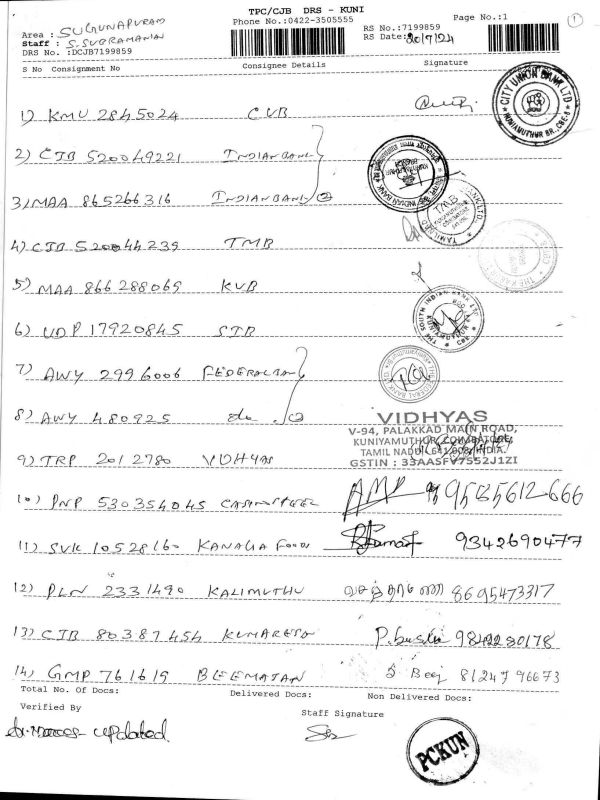 TPC/CJB DRS - KUNI
Area : SUGUNAPURAM
Phone No.:0422-3505555
Page No.:1
①
Staff : S. SUBRAMANIAN
RS No.:7199859
DRS No. :DCJB7199859
RS Date: 20/7/24
S No Consignment No Consignee Details Signature
1) KMU 2845024 CUB
CITY UNION BANK LTD
KUNIAMUTHUR BR., CBE-8
2) CJB 520049221 INDIAN BANK
3) MAA 865266316 INDIAN BANK ②
INDIAN BANK
TMB
TAMILNAD
4) CJB 520044239 TMB
5) MAA 866288069 KVB
6) UDP 17920845 SIB
THE SOUTH INDIAN BANK LTD
KUNIAMUTHUR
CBE
7) AWY 2996006 FEDERAL BANK
FEDERAL BANK
8) AWY 480925 do ②
VIDHYAS
V-94, PALAKKAD MAIN ROAD,
KUNIYAMUTHUR, COIMBATORE,
TAMIL NADU - 641 008, INDIA.
GSTIN : 33AASFV7552J1ZI
9) TRP 2012780 VIDHYAS
10) PNP 530354045 9595612666
11) SVK 10528160 KANAGA FOOD 9342690477
12) PLN 2331490 KALIMUTHU 8695473317
13) CJB 80387454 KUMARESAN 9842230178
14) GMP 761619 BEEMAJAN 8124796673
Total No. Of Docs: Delivered Docs: Non Delivered Docs:
Verified By
Staff Signature
updated
PCKUN